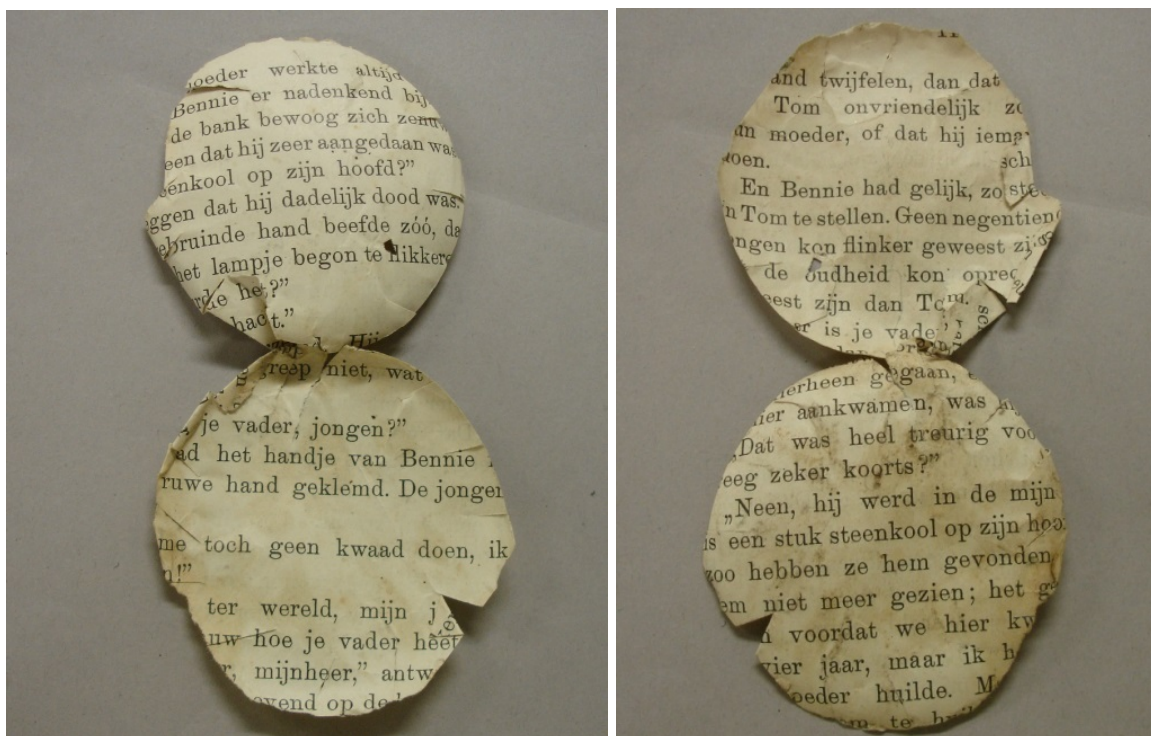 oeder werkte altijd
Bennie er nadenkend bij
de bank bewoog zich zenuw
een dat hij zeer aangedaan was
eenkool op zijn hoofd?”
eggen dat hij dadelijk dood was.
ebruinde hand beefde zóó, da
het lampje begon te flikkere
rde het?”
hacht.”
Hij
greep niet, wat
je vader, jongen?”
ad het handje van Bennie
ruwe hand geklemd. De jongen
me toch geen kwaad doen, ik
n!”
ter wereld, mijn j
uw hoe je vader heet
r, mijnheer,” antw
ovend op de
and twijfelen, dan dat
Tom onvriendelijk zo
an moeder, of dat hij iema
doen.
sch
En Bennie had gelijk, zo ste
n Tom te stellen. Geen negentien
ongen kon flinker geweest zij
de oudheid kon oprec
eest zijn dan Tom.
er is je vade
erheen gegaan,
ier aankwamen, was
„Dat was heel treurig voo
eeg zeker koorts?”
„Neen, hij werd in de mijn
is een stuk steenkool op zijn hoo
zoo hebben ze hem gevonden
em niet meer gezien; het ge
n voordat we hier kw
vier jaar, maar ik h
oeder huilde. M
m te hui